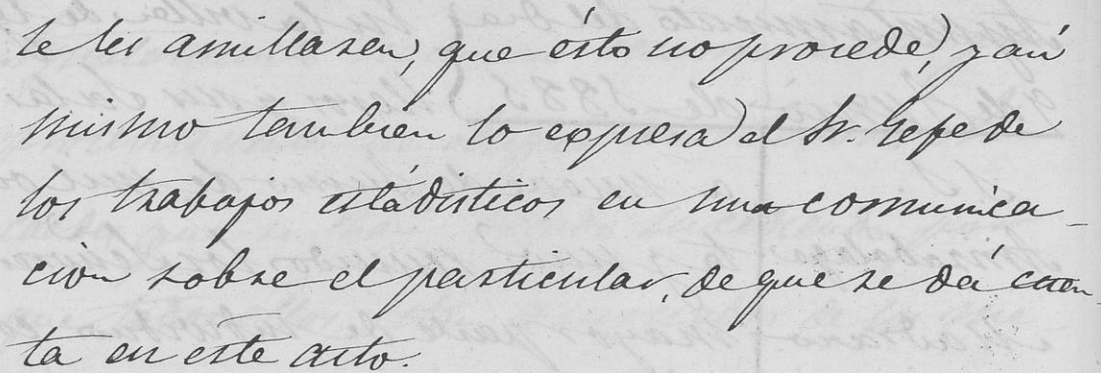 se les amillasen, que ésto no procede, y así
mismo tambien lo expresa el Sr. Gefe de
los trabajos estádisticos en una comunica-
cion sobre el particular, de que se dá cuen-
ta en este acto.